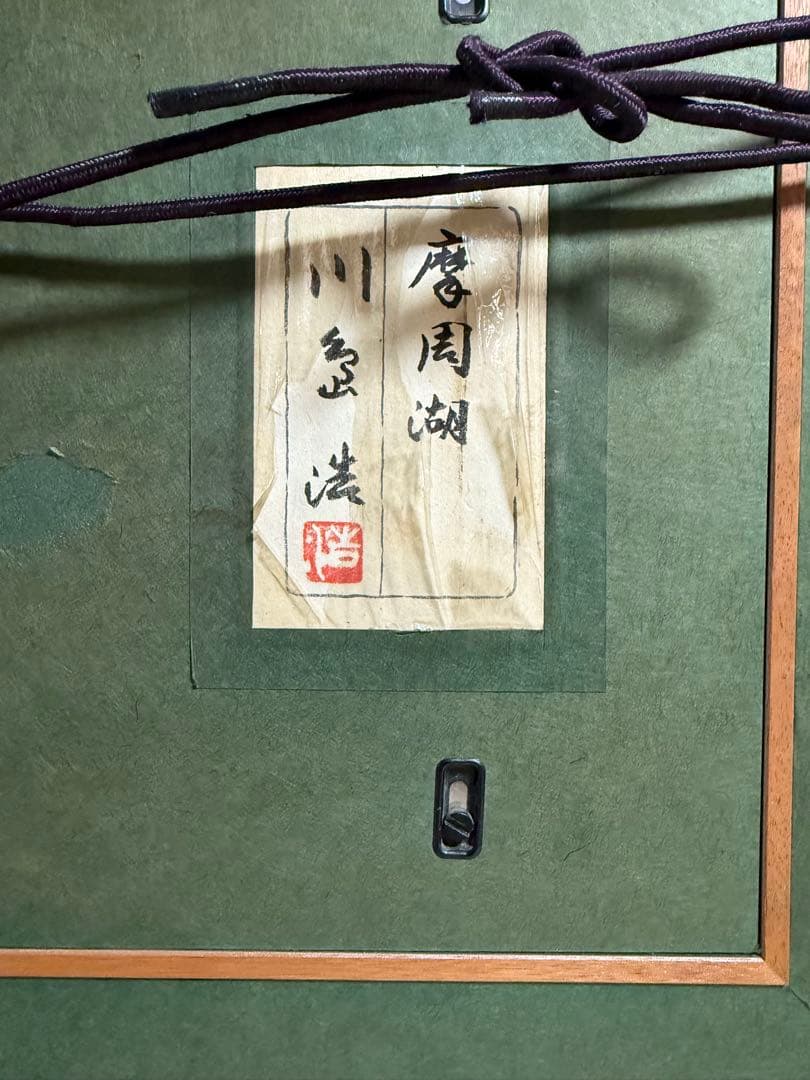 摩周湖
川島浩
浩